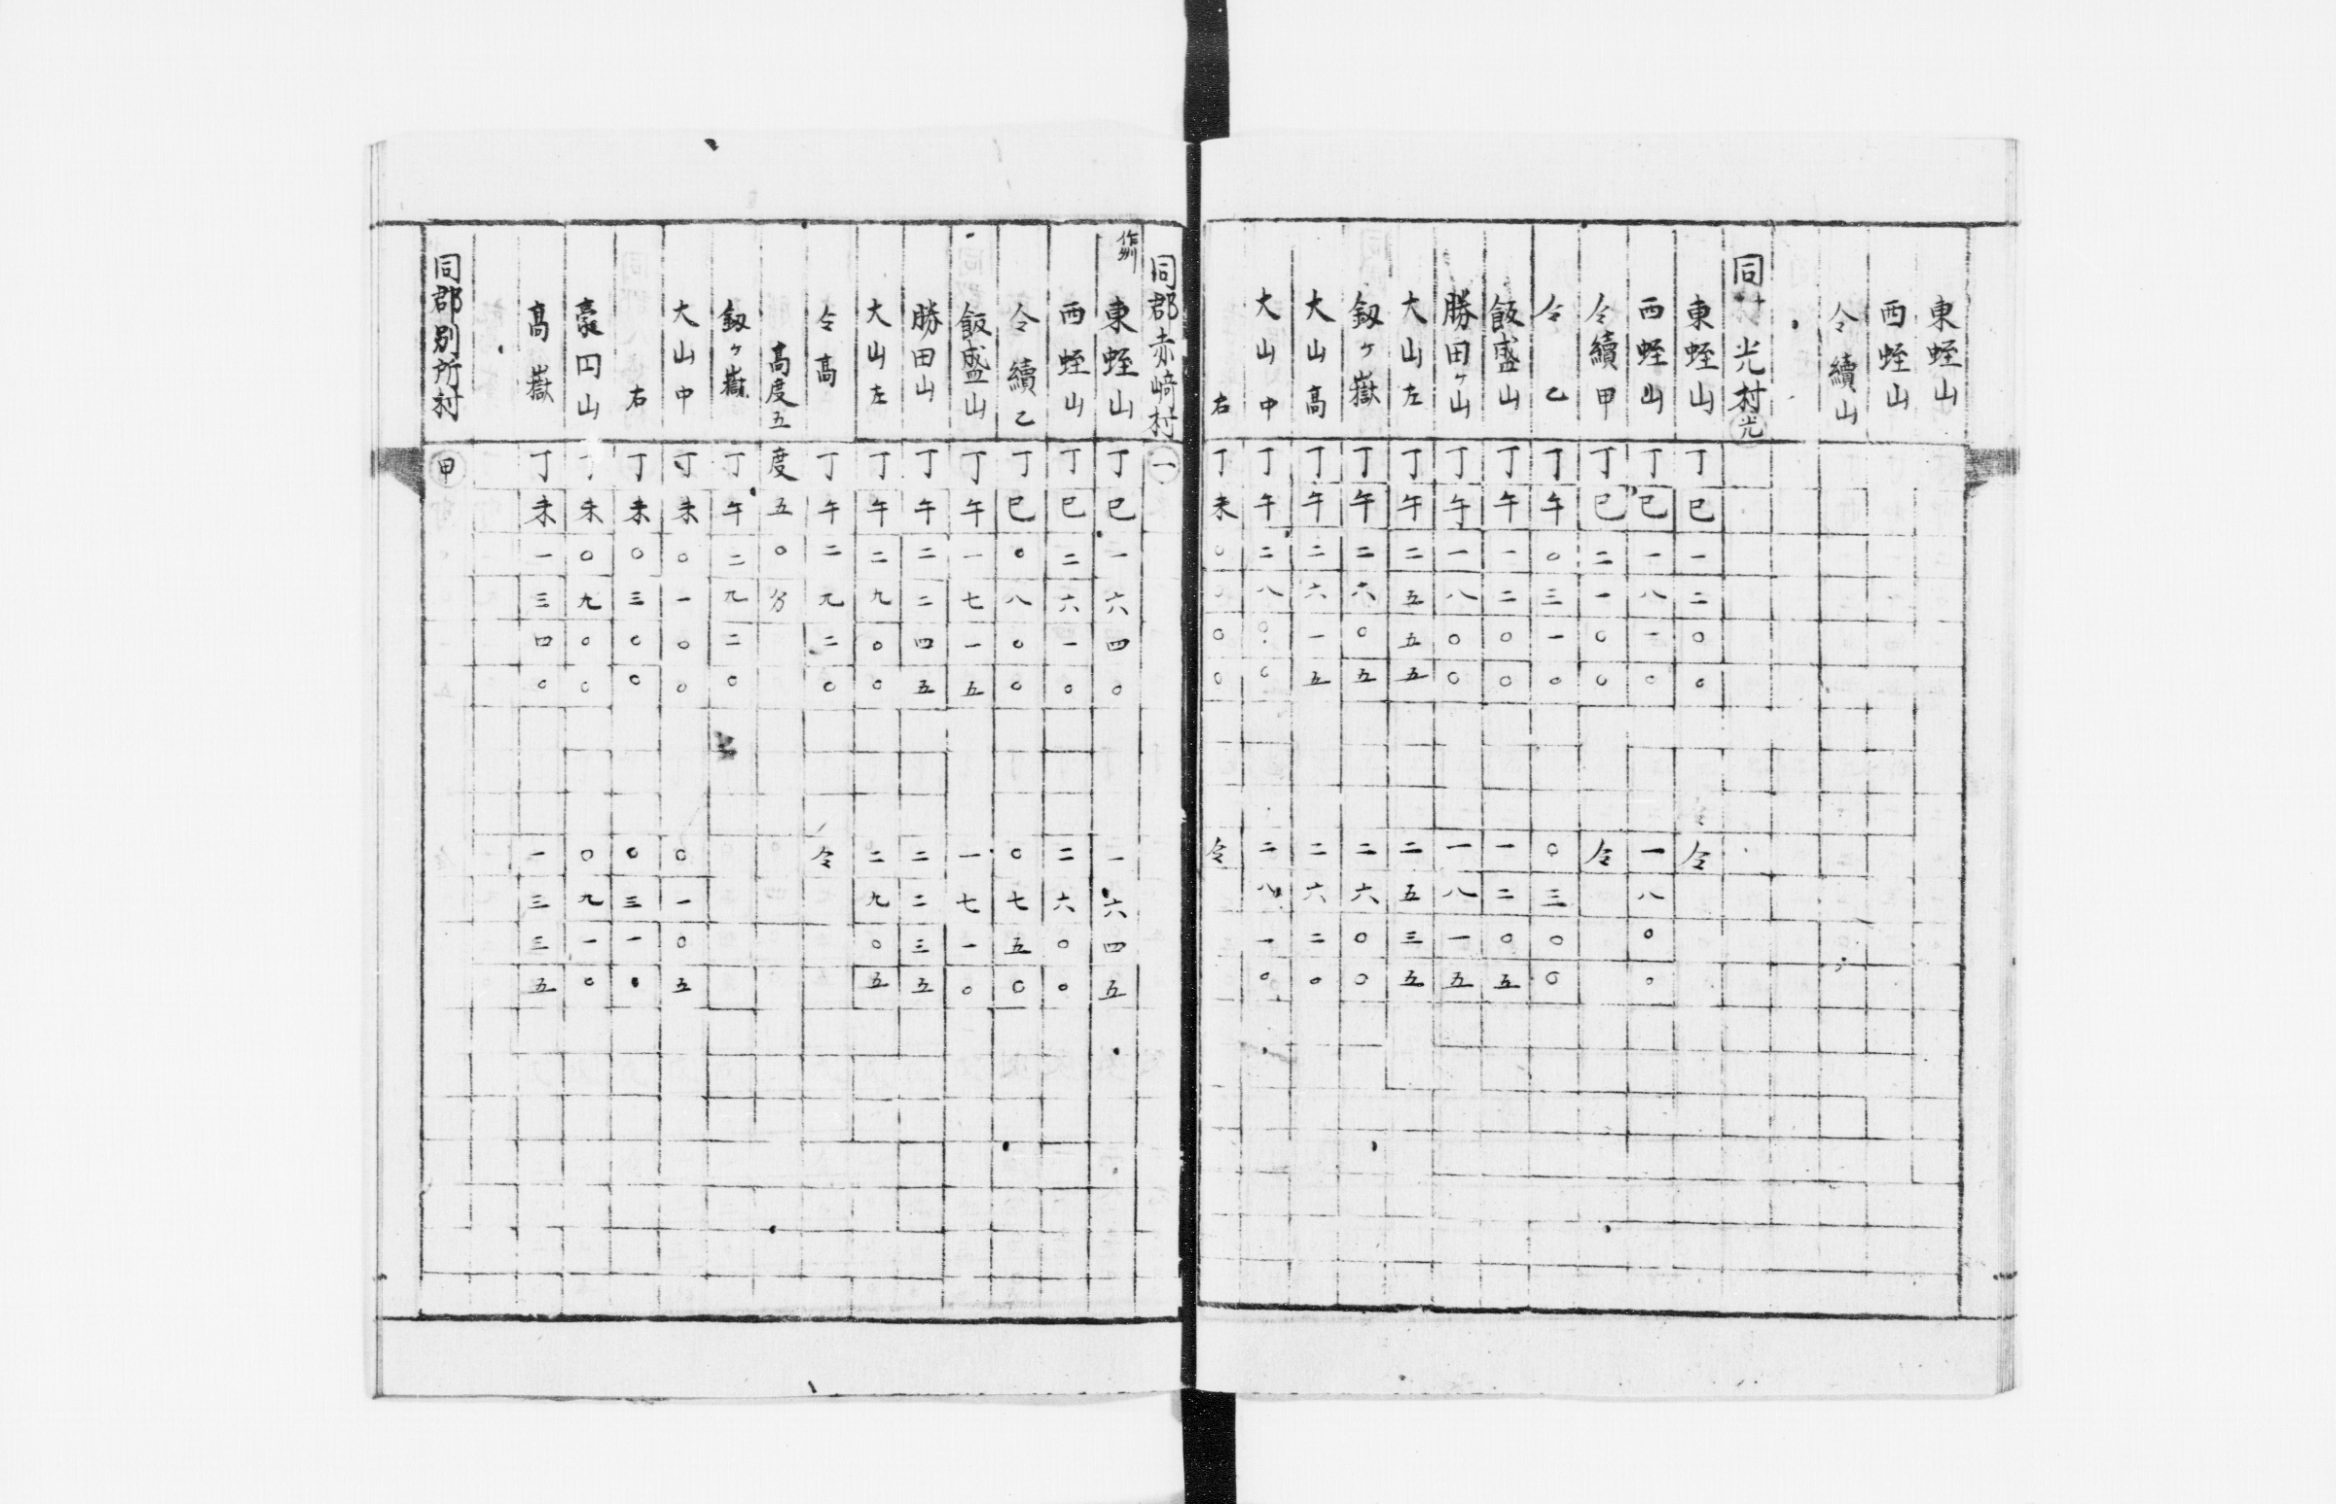 東蛭山
西蛭山
仝續山
同 光村 光
東蛭山 丁巳一二〇〇 仝
西蛭山 丁巳一八一〇 一八〇〇
仝續甲 丁巳二一〇〇 仝
仝乙 丁午〇三一〇 〇三〇〇
飯盛山 丁午一二〇〇 一二〇五
勝田ケ山 丁午一八〇〇 一八一五
大山左 丁午二五五五 二五三五
釼ケ嶽 丁午二六〇五 二六〇〇
大山高 丁午二六一五 二六二〇
大山中 丁午二八〇〇 二八一〇
右 丁未〇〇〇〇 仝
同郡赤﨑村 一
東蛭山 丁巳一六四〇 一六四五
西蛭山 丁巳二六一〇 二六〇〇
仝續乙 丁巳〇八〇〇 〇七五〇
飯盛山 丁午一七一五 一七一〇
勝田山 丁午二二四五 二二三五
大山左 丁午二九〇〇 二九〇五
仝高 丁午二九二〇 仝
高度五度五〇分
釼ケ嶽 丁午二九二〇
大山中 丁未〇一〇〇 〇一〇五
右 丁未〇三〇〇 〇三一〇
豪円山 丁未〇九〇〇 〇九一〇
髙嶽 丁未一三四〇 一三三五
同郡別所村 甲